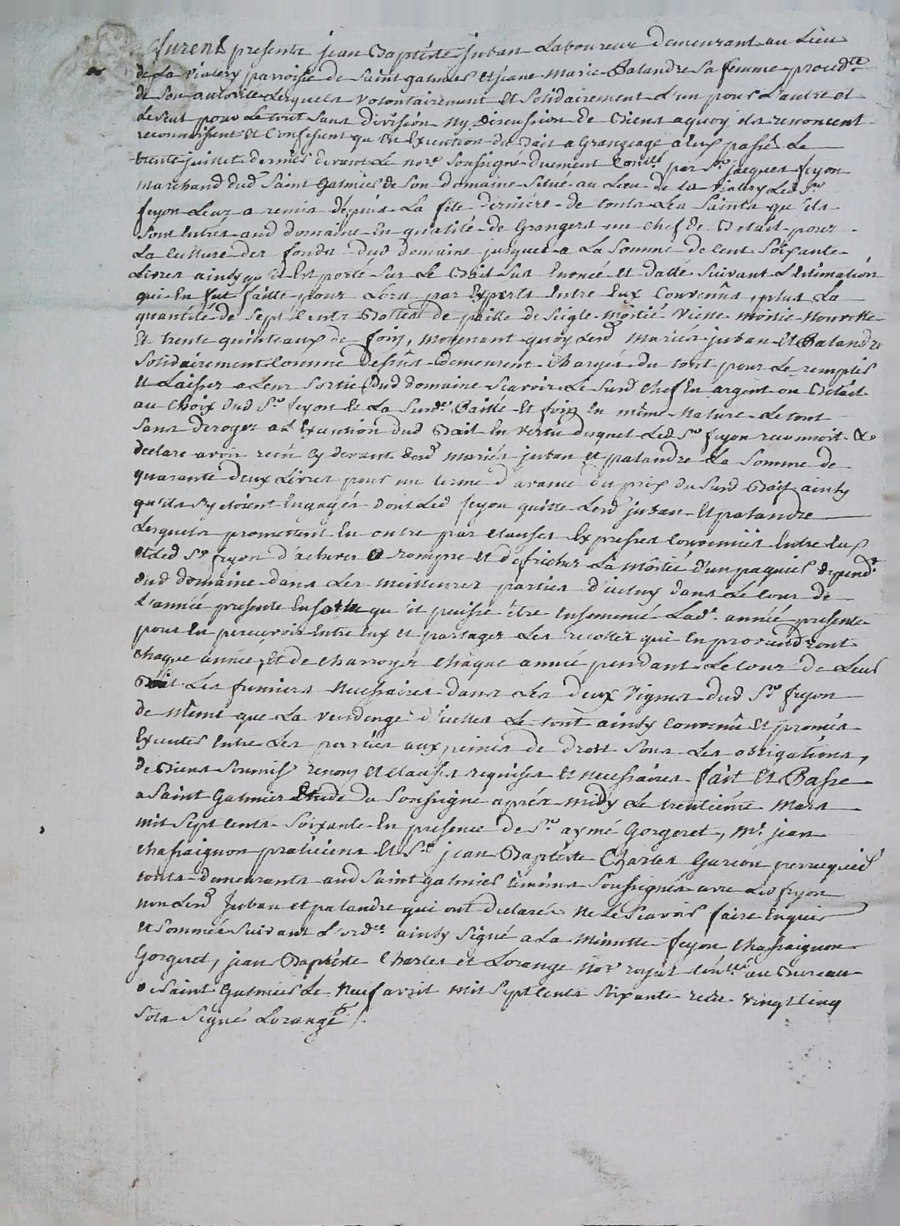 furent presents jean Baptéste juban Laboureur demeurant au Lieu
de La viatery parroisse de Saint galmier et jeane Marie Palandre sa femme proced.te
de Son autorité Lesquels volontairement et Solidairement L'un pour L'autre et
Le seul pour Le tout Sans division ny discussion de biens a quoy ils renoncent
reconnoissent et Confessent qu'en Execution du Bait a Grangeage a Eux passés Le
trente juillet dernier devant Le no.re Soussigné duement Conllé par S.r jacques feyon
Marchand dud. Saint Galmier de Son domaine Situé au Lieu de La viatery Led S.r
feyon Leur a remis depuis La fete derniere de touts Les Saints qu'ils
Sont Entrés aud domaine En qualité de Grangers un chef de betait pour
La Culture des fonds dud domaine jusques a La Somme de Cent Soixante
Livres ainsy qu'il Est porté Sur Le Bait Sus Enoncé et datté Suivant L'estimation
qui En fut faitte pour Lors par Experts Entre Eux Convenûs, plus La
quantité de Sept Cents Bottes de paille de Seigle moitié Vielle moitié Nouvelle
Et trente quinteaux de foin, moyenant quoy Lesd mariés juban et Palandre
Solidairement Comme dessûs demeurent Chargés du tout pour Le remplir
et Laisser a Leur Sortie dud domaine Scavoir Le Susd Chef En argent ou Betait
au Choix dud S.r feyon Et La Susd.e Paille Et foin En même Nature Le tout
Sans deroger a L'Execution dud Bait En vertu duquel Led S.r feyon reconnoit &
declare avoir recû cy devant desd mariés juban et palandre La Somme de
quarante deux Livres pour un terme d'avance du prix du Susd Bait ainsy
qu'ils s'y étoient Engagés dont Led feyon quitte Lesd juban Et palandre
Lesquels promettent En outre par Clauses Expresses Convenues Entre Eux
et Led S.r feyon d'achever a rompre et défricher La moitié d'un paquel depend.t
dud domaine dans Les meilleures parties d'icelui dans Le Cour de
L'année presente En sorte qu'il puisse être Ensemencé Lad. année presente
pour En percevoir Entre Eux et partager Les recoltes qui En proviendront
chaque année, et de charroyer chaque année pendant Le Cour de Leur
Bait Les fumiers necessaires dans Les deux vignes dud S.r feyon
de même que La vendenge d'icelles Le tout ainsy Convenû Et promis
Executer Entre Les parties aux peines de droit Sous Les obligations,
de biens Soumis. renon. et clauses requises et necessaires fait Et Passé
a Saint Galmier Etude du Soussigné après midy Le trentiéme mars
mil Sept Cents Soixante En presence de S.r aymé Gorgeret, M.e jean
chafraignon praticiens Et S.r jean Baptéste Charles Garcon perruquier
touts demeurants aud Saint galmier temoins Soussignés avec Led feyon
non Lesd Juban et palandre qui ont declarés ne Le Scavoir faire Enquis
et Sommés Suivant L'ord.ce ainsy Signé a La minutte feyon Chafraignon
Gorgeret, jean Baptéste Charles et Lorange Not royal Con.llé au Bureau
de Saint Galmier Le Neuf avril mil Sept Cents Soixante reçu vingt Cinq
Sols Signé Lorange